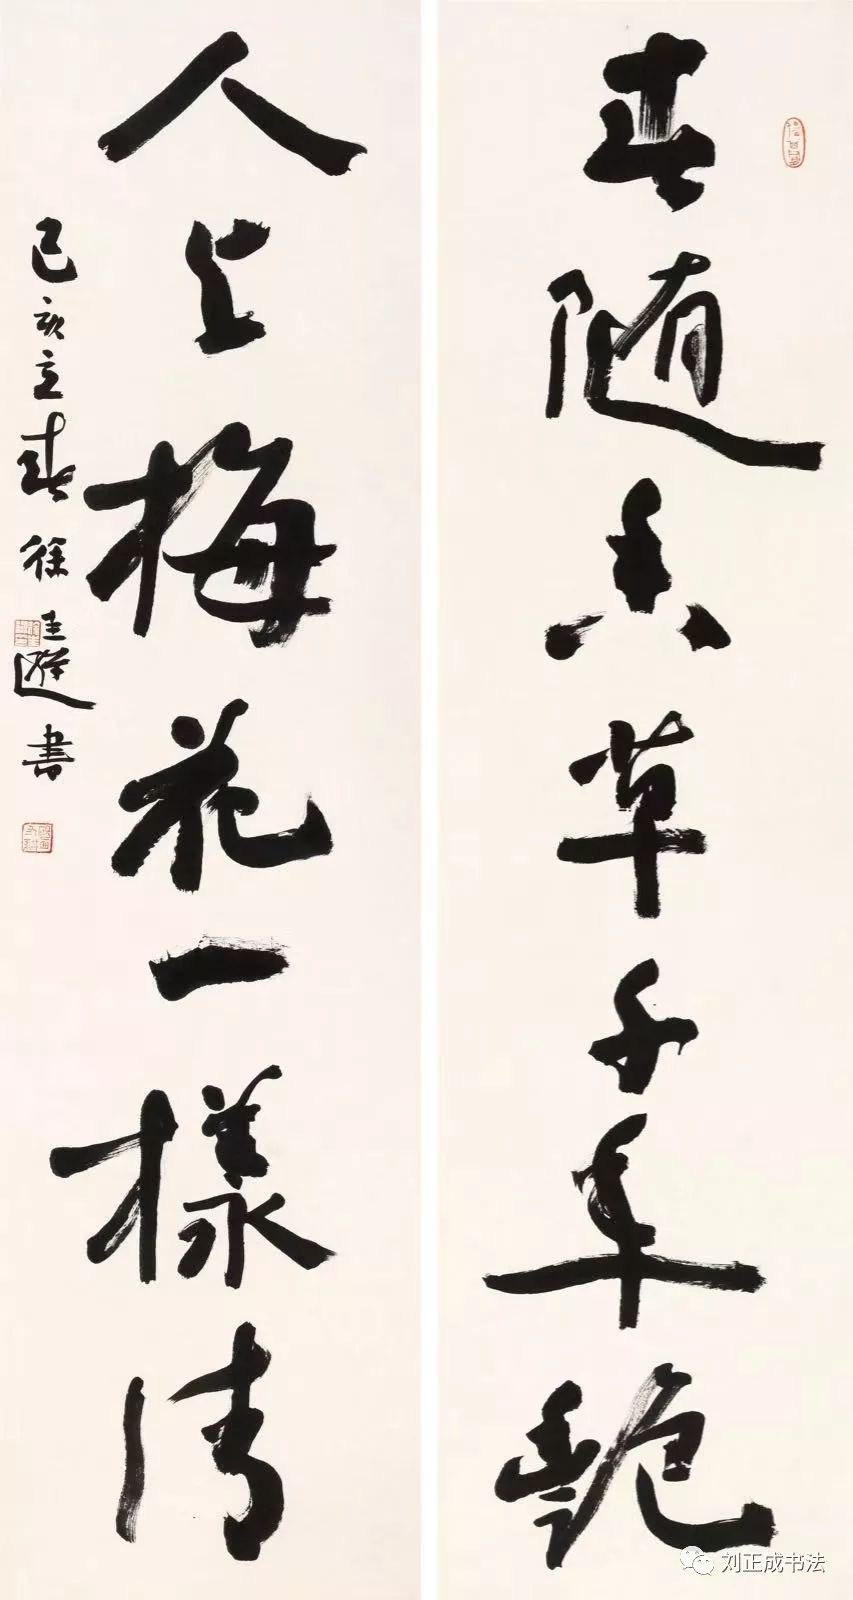 春随香草千年艷
人与梅花一樣清
己亥立春徐圭書
刘正成书法